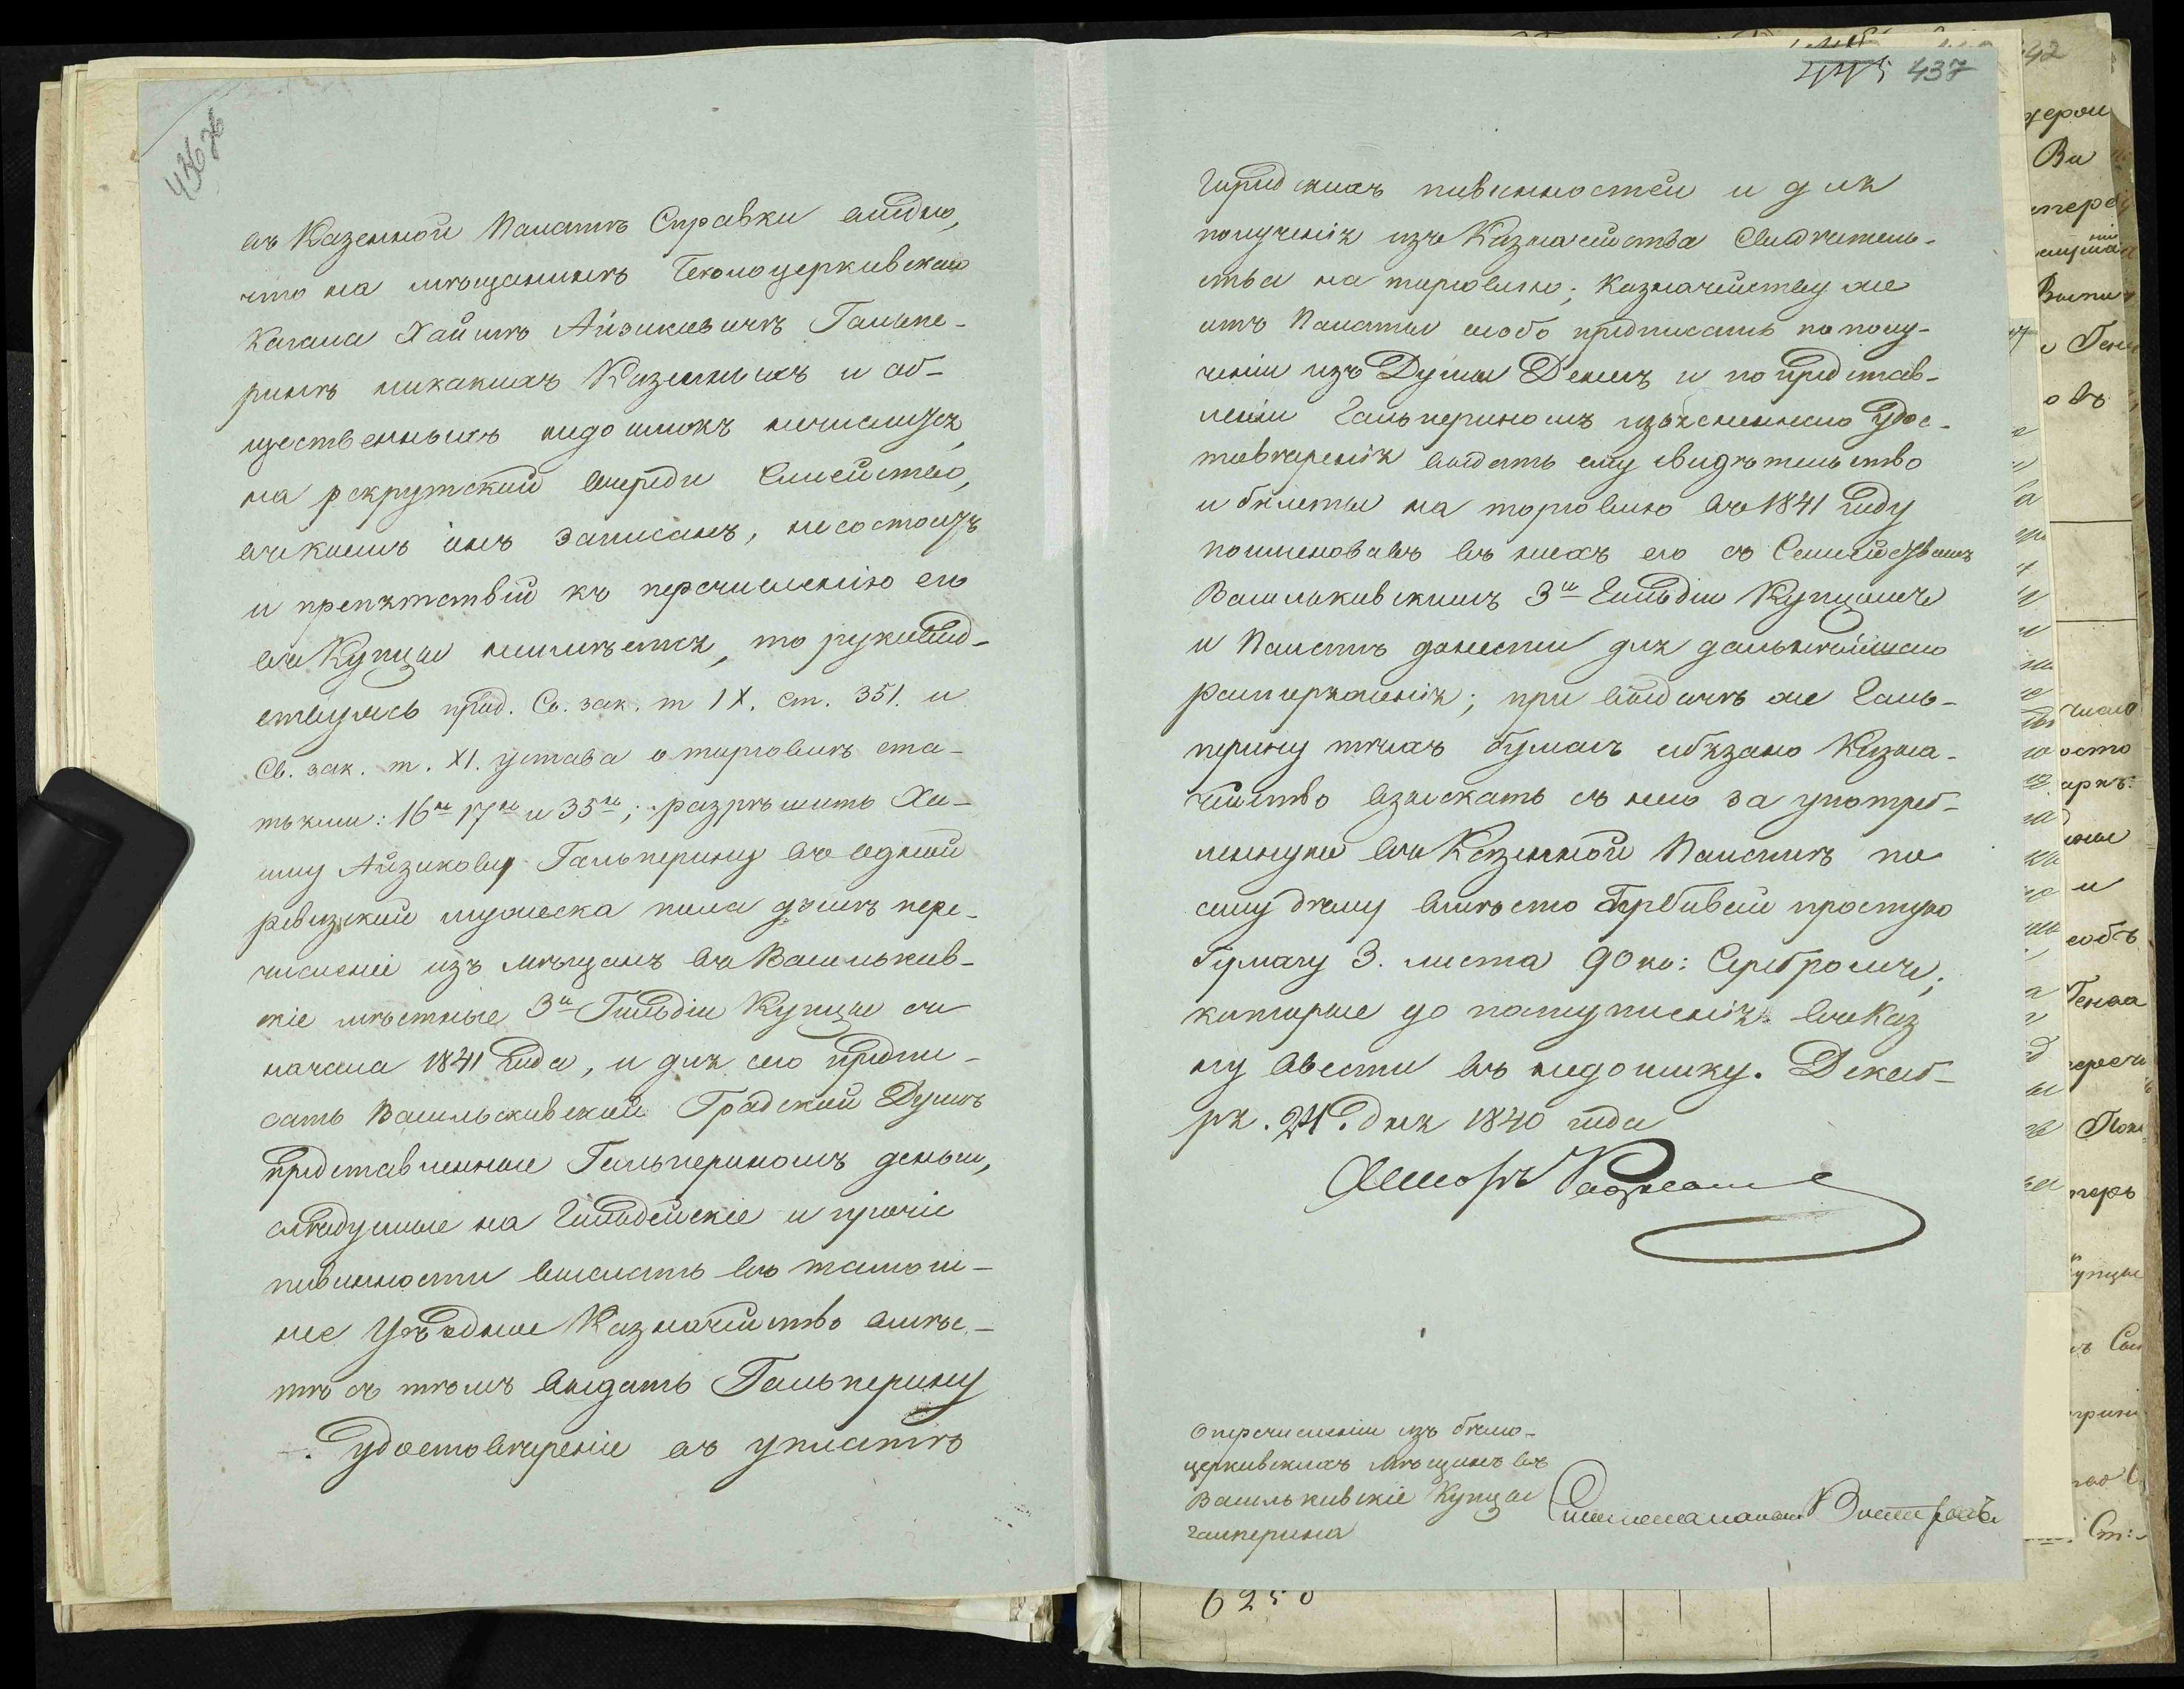 436 об
въ Казенной Палатѣ Справки видно,
что на мѣщанинѣ Бѣлоцерковскаго
Кагала Хаимѣ Айзиковичѣ Гальпе-
ринѣ никакихъ Казенныхъ и об-
щественныхъ недоимокъ нечислится,
на рекрутской очереди Семейство,
въ коемъ онъ записанъ, не состоитъ
и препятствій къ перечисленію его
въ Купцы неимѣется, то руковод-
ствуясь прод. Св. зак. т IX. ст. 351. и
Св. зак. т. XI. устава о торговлѣ ста-
тьями: 16й 17й и 35й; разрѣшить Ха-
иму Айзикову Гальперину въ одной
ревизской мужеска пола душѣ пере-
численіе изъ мѣщанъ въ Васильков-
скіе мѣстные 3й Гильдіи Купцы съ
начала 1841 года, и для сего предпи-
сать Васильковской Градской Думѣ
представленные Гальпериномъ деньги,
слѣдуемые на Гильдейскіе и прочіе
повинности внесть въ тамош-
нее Уѣздное Казначейство вмѣс-
тѣ съ тѣмъ выдать Гальперину
удостовѣреніе въ уплатѣ
445 437
Городскихъ повинностей и для
полученія изъ Казначейства Свидѣтель-
ства на торговлю; Казначейству же
отъ Палаты особо предписать по полу-
ченіи изъ Думы Денегъ и по представ-
леніи Гальпериномъ изъясненнаго удос-
товѣренія выдать ему свидѣтельство
и билеты на торговлю въ 1841 году
поименовавъ въ нихъ его съ Семействомъ
Васильковскимъ 3й Гильдіи Купцомъ
и Палатѣ донести для дальнѣйшаго
распоряженія; при выдачѣ же Галь-
перину тѣхъ бумагъ обязано Казна-
чейство взыскать съ него за употреб-
ленную въ Казенной Палатѣ по
сему дѣлу вмѣсто Гербовой простую
бумагу 3. листа 90 ко: Серебромъ,
которые до поступленія въ Каз
ну ввести въ недоимку. Декаб-
ря. 24. дня 1840 года
О перечисленіи изъ бѣло-
церковскихъ мѣщанъ въ
Васильковскіе Купцы
Галперина
6250